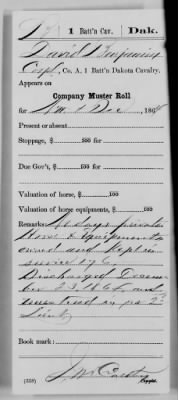 D | 1 Batt'n Cav. | Dak.
David Benjamin
Corpl, Co. A, 1 Batt'n Dakota Cavalry.
Appears on
Company Muster Roll
for Nov & Dec, 1864
Present or absent
Stoppage, $ 100 for
Due Gov't, $ 100 for
Valuation of horse, $ 100
Valuation of horse equipments, $ 100
Remarks: private
Horse & Equipments
owned and kept in
service by
Discharged Decem-
ber 23 1864 and
mustered in as 2d
Lieut
Book mark:
(358) Copyist.